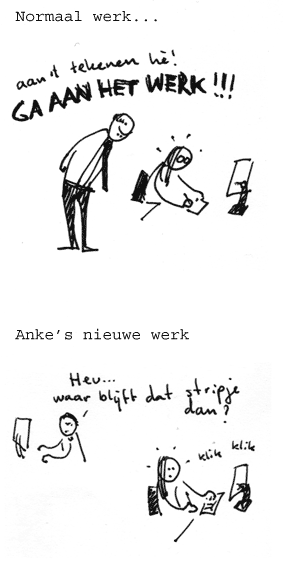 Normaal werk...
aan't tekenen hè!
GA AAN HET WERK!!!
Anke's nieuwe werk
Heu...
waar blijft dat stripje
dan?
klik klik